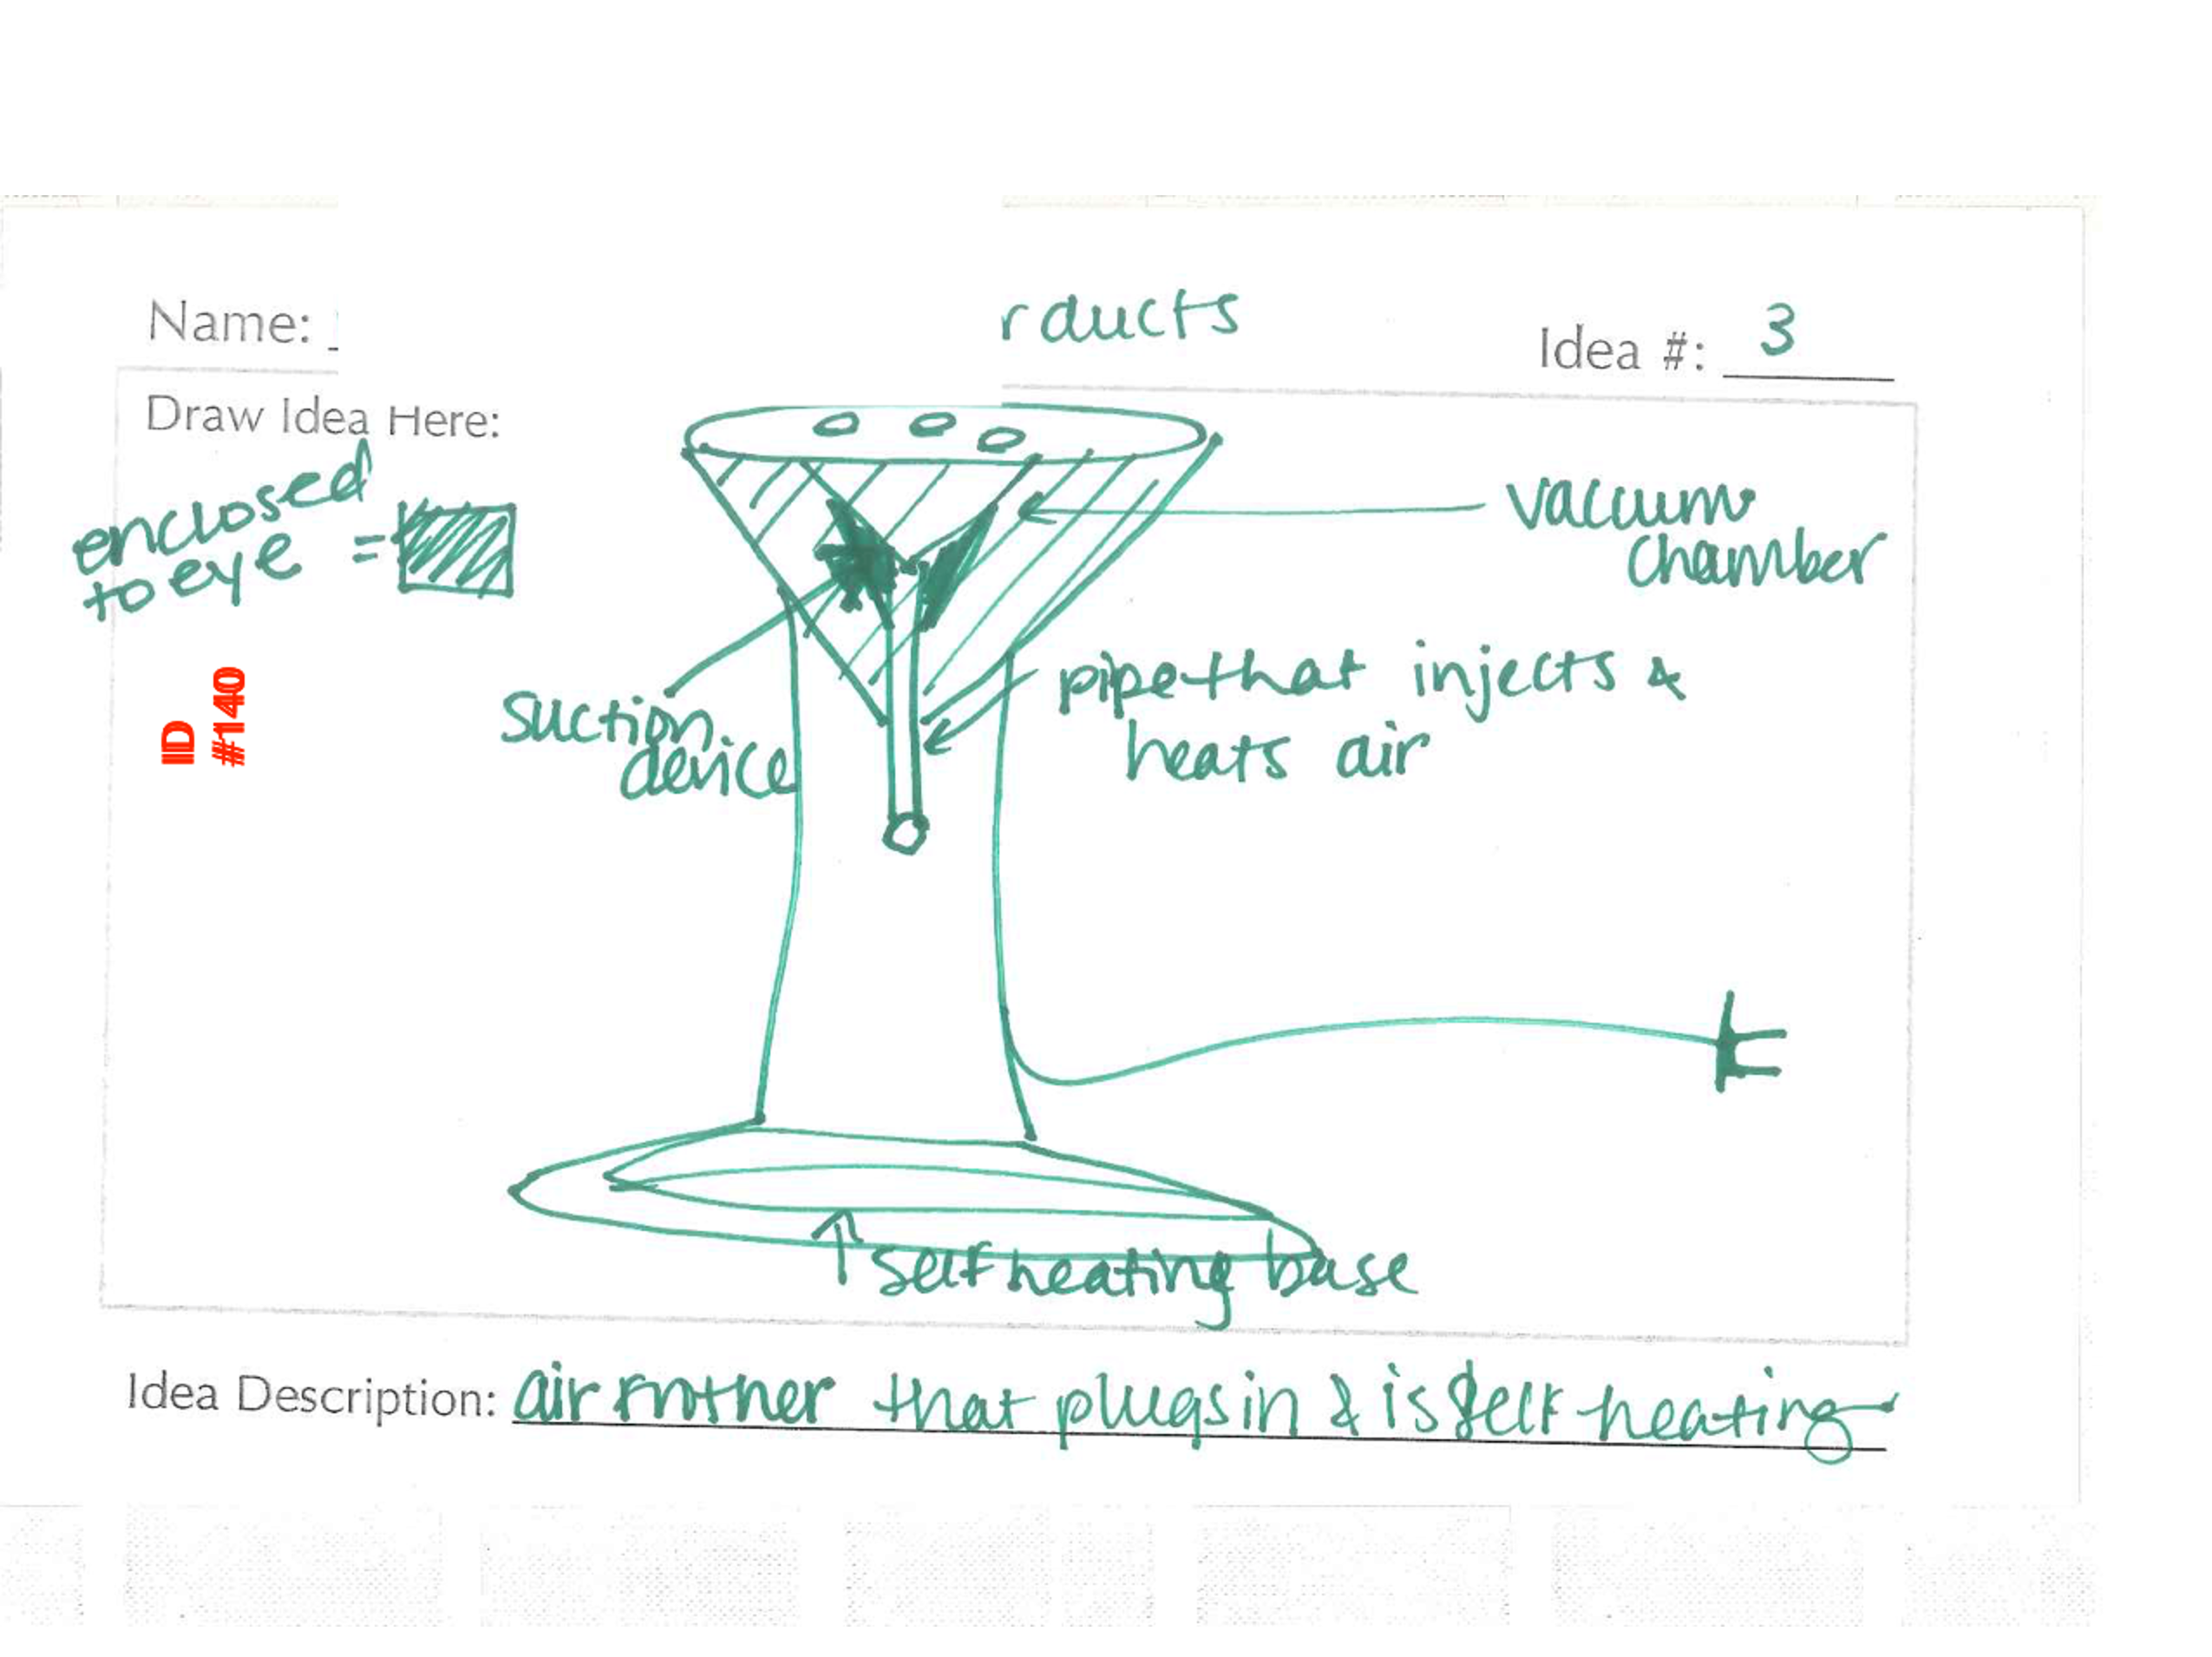 Name:
rducts
Idea #: 3
Draw Idea Here:
enclosed
to eye =
vacuum
chamber
IID
#1140
suction
device
pipe that injects &
heats air
self heating base
Idea Description: air frother that plugs in & is self heating